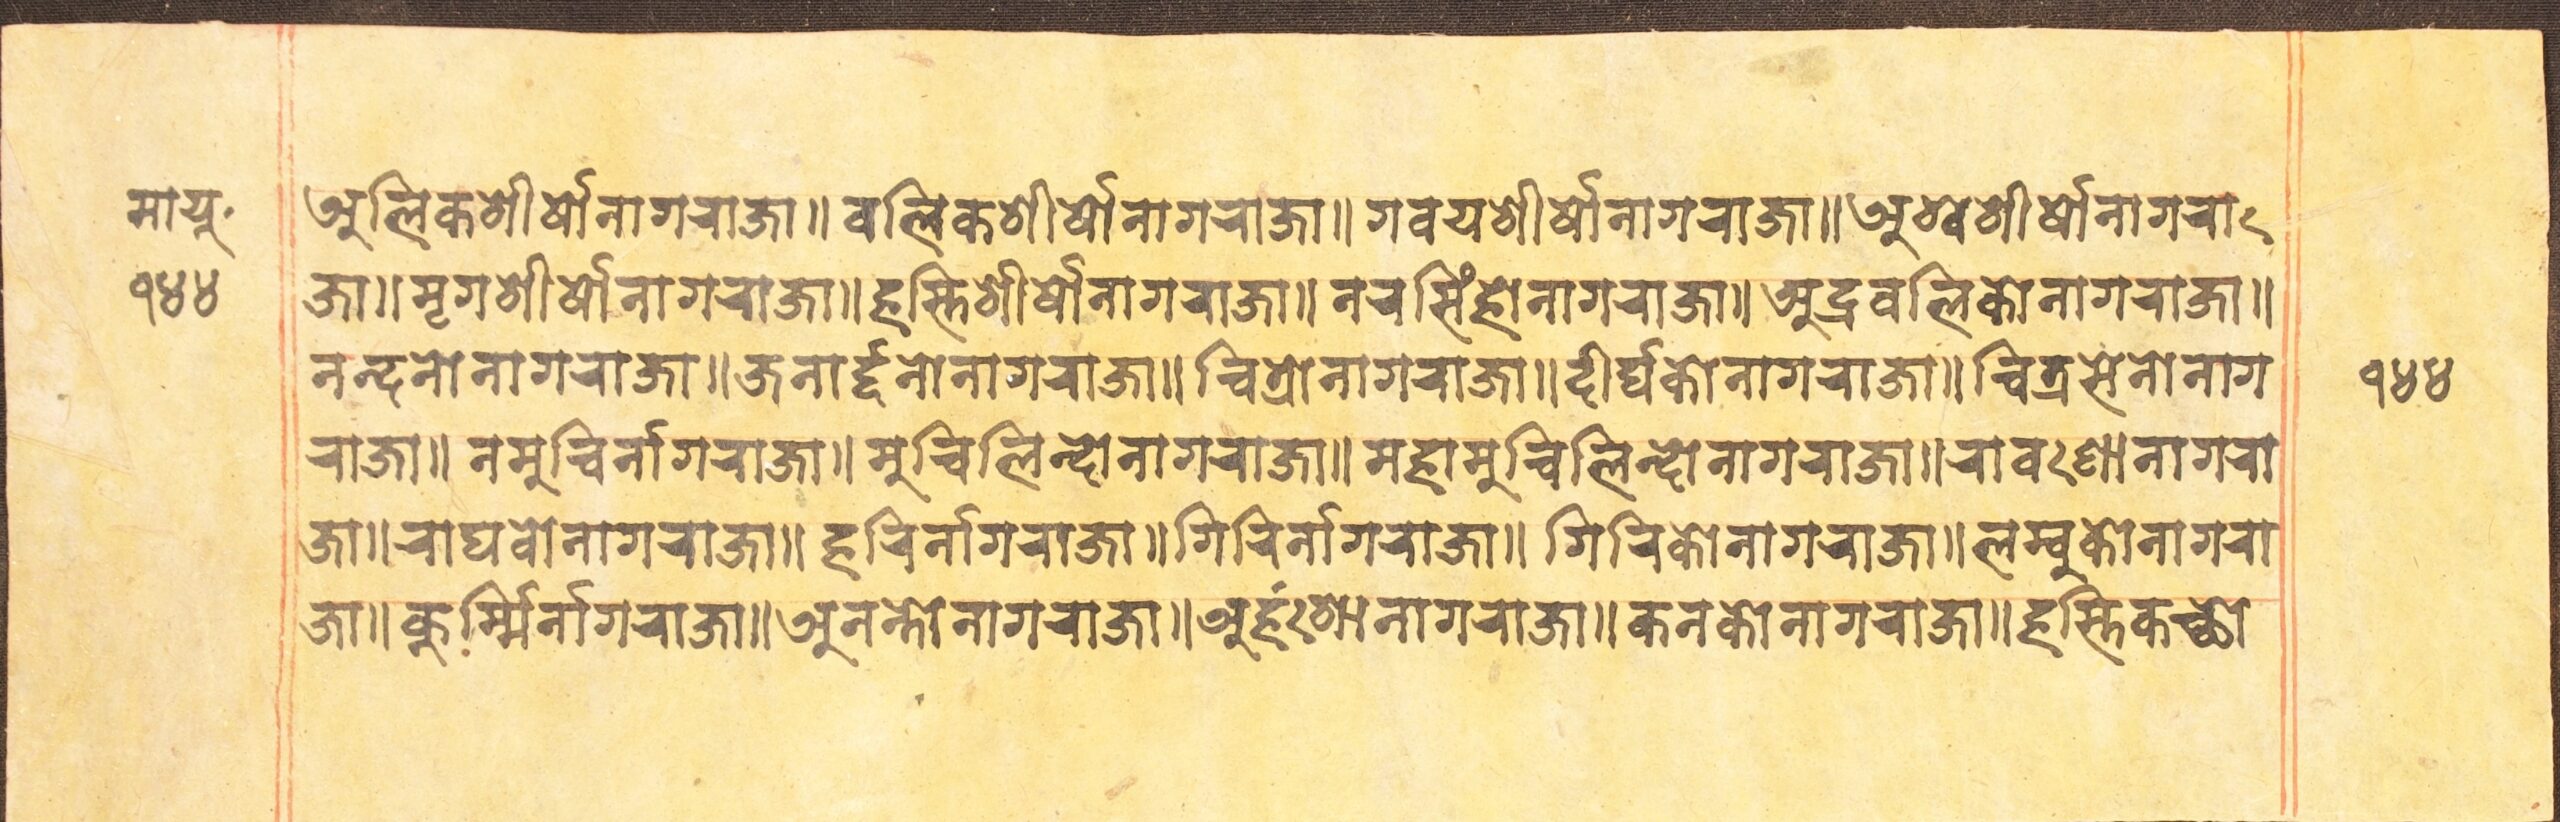 मायु॰
१४४
अलिकशीर्षोनागराजा॥ वलिकशीर्षोनागराजा॥ गवयशीर्षोनागराजा॥ अश्वशीर्षोनागरा
जा॥ मृगशीर्षोनागराजा॥ हस्तिशीर्षोनागराजा॥ नरसिंहोनागराजा॥ अद्रवलिकोनागराजा॥
नन्दनोनागराजा॥ जनार्द्दनोनागराजा॥ चित्रोनागराजा॥ दीर्घकोनागराजा॥ चित्रसेनोनाग
१४४
राजा॥ नमुचिर्नागराजा॥ मुचिलिन्दोनागराजा॥ महामुचिलिन्दोनागराजा॥ रावणोनागरा
जा॥ राघवोनागराजा॥ हरिर्नागराजा॥ गिरिर्नागराजा॥ गिरिकोनागराजा॥ लम्बुकोनागरा
जा॥ कुर्म्मिर्नागराजा॥ अनन्तोनागराजा॥ नागराजा॥ कनकोनागराजा॥ हस्तिकच्छो